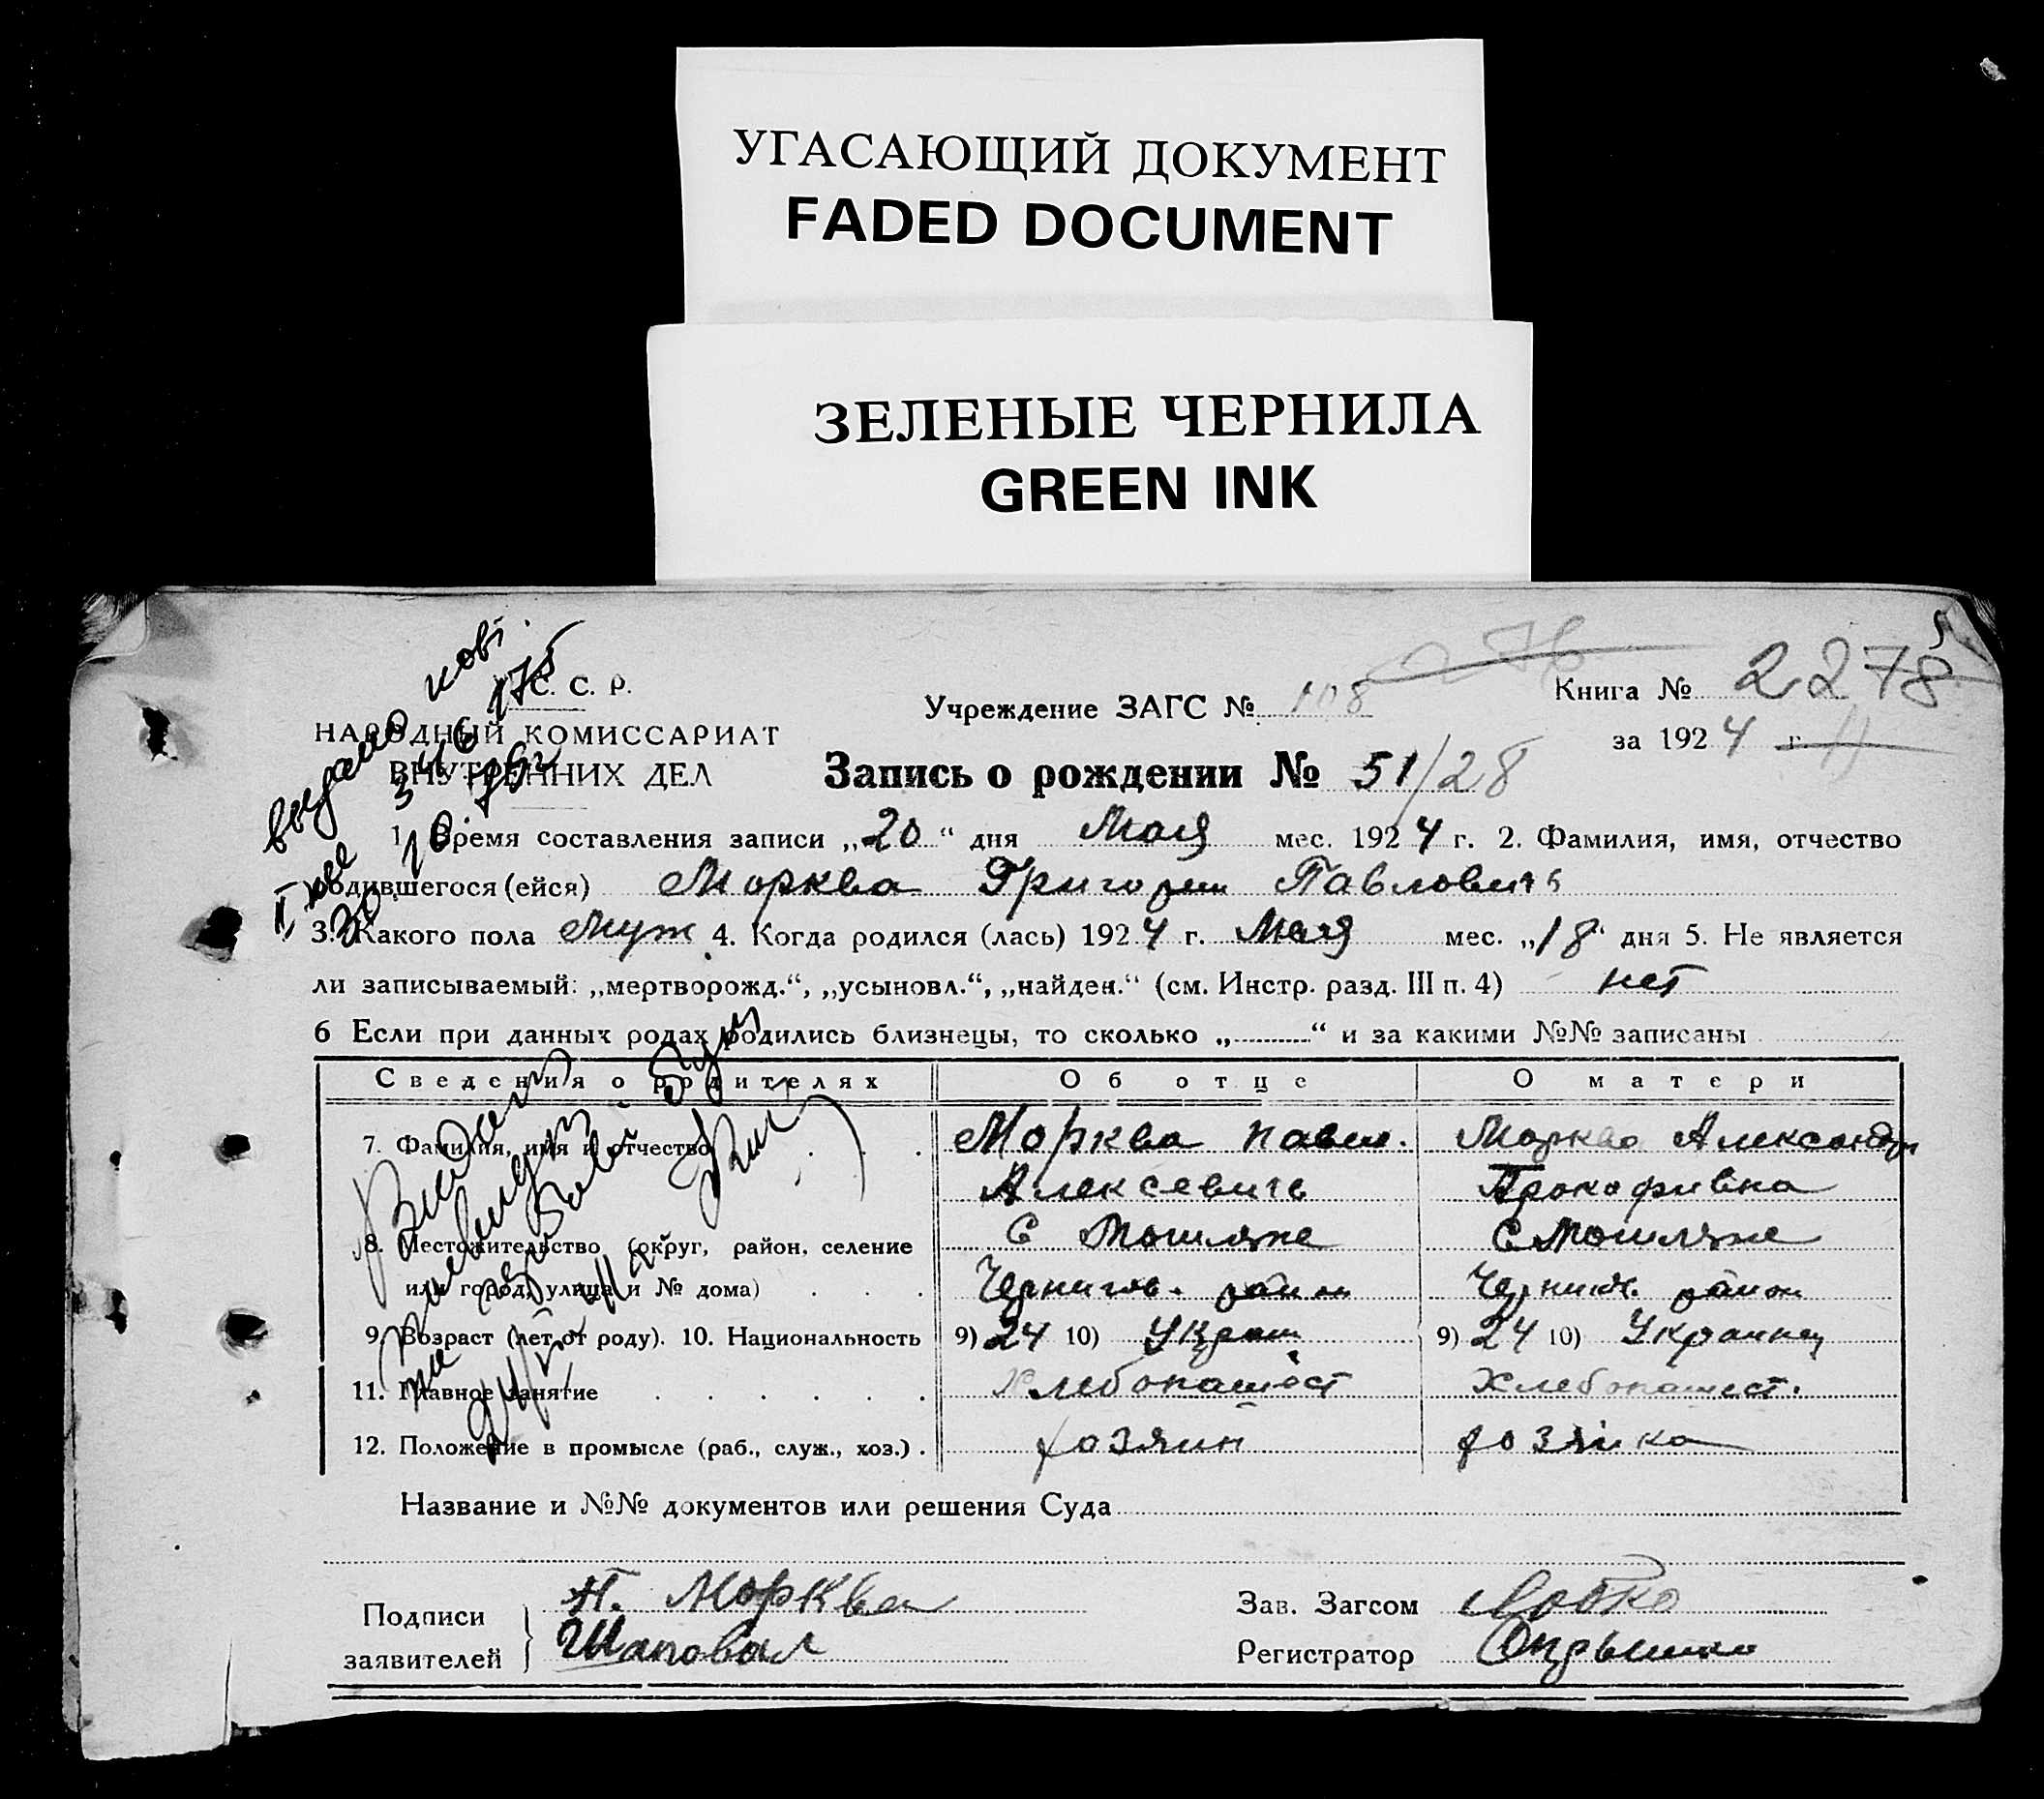 УГАСАЮЩИЙ ДОКУМЕНТ
FADED DOCUMENT
ЗЕЛЕНЫЕ ЧЕРНИЛА
GREEN INK
С. С. Р.
НАРОДНЫЙ КОМИССАРИАТ
ВНУТРЕННИХ ДЕЛ
Учреждение ЗАГС № 108
276
Книга № 2 278
за 1924 г.
Запись о рождении № 51/28
1. Время составления записи „20“ дня Мая мес. 1924 г. 2. Фамилия, имя, отчество
родившегося (ейся) Морква Григории Павловичь
3. Какого пола Муж 4. Когда родился (лась) 1924 г. Мая мес. „18“ дня 5. Не является
ли записываемый: „мертворожд.“, „усыновл.“, „найден.“ (см. Инстр. разд. III п. 4) нет
6 Если при данных родах родились близнецы, то сколько „ “ и за какими №№ записаны
Сведения о родителях Об отце О матери
7. Фамилия, имя и отчество Морква Павел. Морква Александр
Алексевичь Прокофивна
8. Местожительство (округ, район, селение С С
или город, улица и № дома) Чернигов. район Чернигов. район
9. Возраст (лет от роду). 10. Национальность 9) 24 10) Украин 9) 24 10) Украинец
11. Главное занятие Хлебопашест Хлебопашест.
12. Положение в промысле (раб., служ., хоз.) хозяин хозяйка
Название и №№ документов или решения Суда
Подписи П. Морква Зав. Загсом Лобко
заявителей Шаповал Регистратор